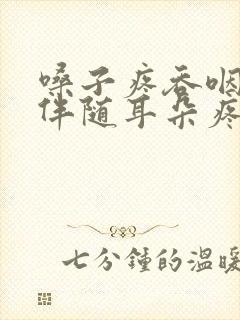 嗓子疼吞咽
伴随耳朵疼
七分鐘的温暖